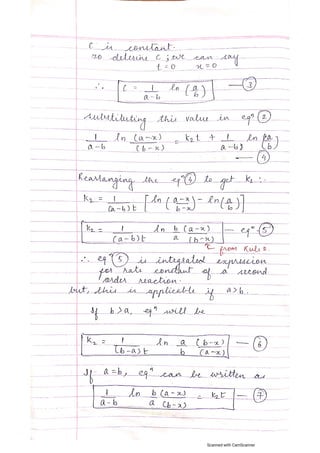 C is constant.
To determine C ; we can say
t = 0 x = 0
∴ C = 1/(a-b) ln (a/b) — (3)
Substituting this value in eqⁿ (2)
1/(a-b) ln (a-x)/(b-x) = k₂t + 1/(a-b) ln (a/b)
— (4)
Rearranging the eqⁿ (4) to get k₂ :-
k₂ = 1/((a-b)t) [ln (a-x/b-x) - ln (a/b)]
k₂ = 1/((a-b)t) ln b (a-x)/a (b-x) — eqⁿ (5)
from Rule
∴ eqⁿ (5) is integrated expression
for rate constant of a second
order reaction.
but, this is applicable if a>b.
If b>a, eqⁿ will be
k₂ = 1/((b-a)t) ln a (b-x)/b (a-x) — (6)
If a=b, eqⁿ can be written as
1/(a-b) ln b (a-x)/a (b-x) = k₂t — (7)
Scanned with CamScanner